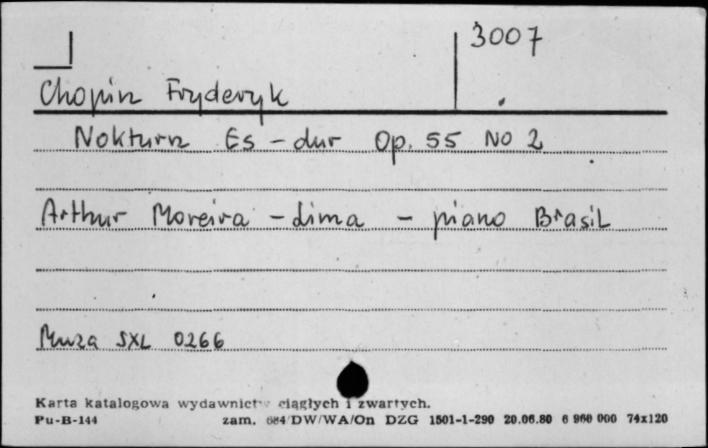 3007
Chopin Fryderyk
Nokturn Es-dur Op. 55 No 2
Arthur Moreira-dima - piano Brasil
Muza SXL 0266
Karta katalogowa wydawnictw ciągłych i zwartych.
Pu-B-144 zam. 684/DW/WA/On DZG 1501-1-290 20.06.80 6 960 000 74x120